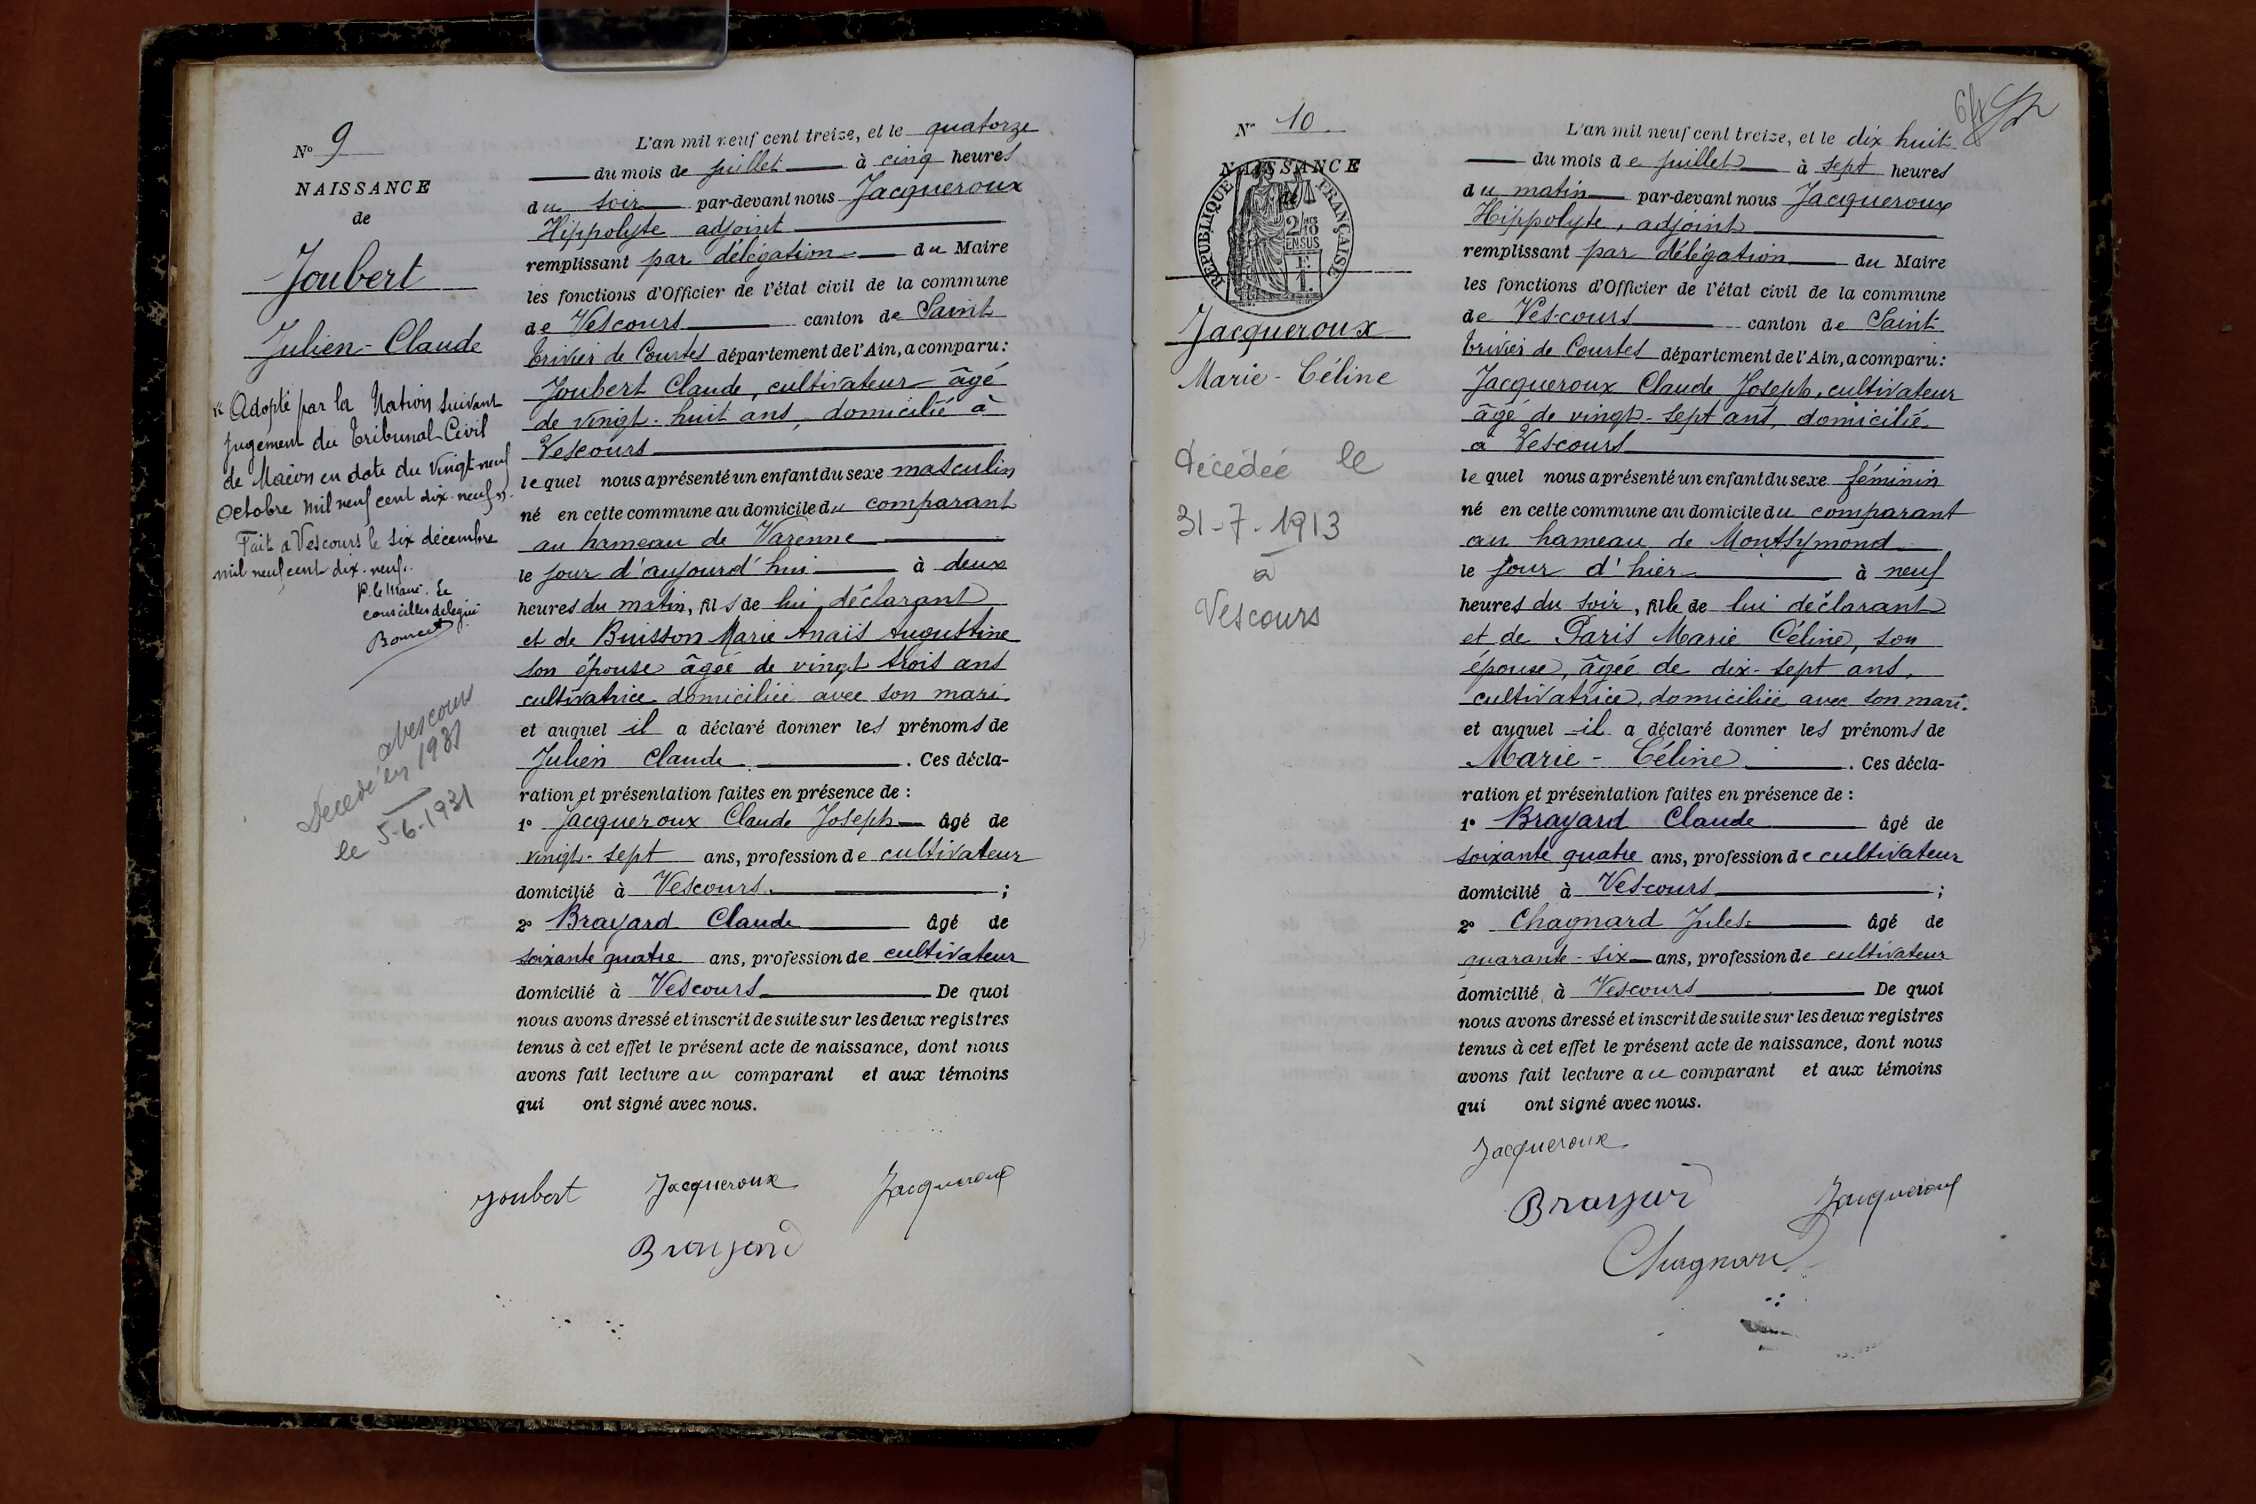 N° 9
NAISSANCE
de
Joubert
Julien-Claude
"Adopté par la Nation suivant
jugement du Tribunal Civil
de Macon en date du vingt-neuf
Octobre mil neuf cent dix-neuf".
Fait à Vescours le six décembre
mil neuf cent dix-neuf.
P. le Maire. Le
conseiller délégué
à Vescours
Décédé en 1931
le 5-6-1931
L'an mil neuf cent treize, et le quatorze
du mois de juillet à cinq heures
du soir par-devant nous Jacqueroux
Hippolyte adjoint
remplissant par délégation du Maire
les fonctions d'Officier de l'état civil de la commune
de Vescours canton de Saint
Trivier de Courtes département de l'Ain, a comparu :
Joubert Claude, cultivateur âgé
de vingt-huit ans, domicilié à
Vescours
lequel nous a présenté un enfant du sexe masculin
né en cette commune au domicile du comparant
au hameau de Varenne
le jour d'aujourd'hui à deux
heures du matin, fils de lui déclarant
et de Buisson Marie Anaïs Augustine
son épouse âgée de vingt trois ans
cultivatrice domiciliée avec son mari.
et auquel il a déclaré donner les prénoms de
Julien Claude. Ces décla-
ration et présentation faites en présence de :
1° Jacqueroux Claude Joseph âgé de
vingt-sept ans, profession de cultivateur
domicilié à Vescours. ;
2° Brayard Claude âgé de
soixante quatre ans, profession de cultivateur
domicilié à Vescours De quoi
nous avons dressé et inscrit de suite sur les deux registres
tenus à cet effet le présent acte de naissance, dont nous
avons fait lecture au comparant et aux témoins
qui ont signé avec nous.
Joubert Jacqueroux Jacqueroux
Brayard
64
N° 10
NAISSANCE
de
RÉPUBLIQUE FRANÇAISE
Jacqueroux
Marie-Céline
Décédée le
31-7-1913
à
Vescours
L'an mil neuf cent treize, et le dix huit
du mois de juillet à sept heures
du matin par-devant nous Jacqueroux
Hippolyte, adjoint
remplissant par délégation du Maire
les fonctions d'Officier de l'état civil de la commune
de Vescours canton de Saint
Trivier de Courtes département de l'Ain, a comparu :
Jacqueroux Claude Joseph, cultivateur
âgé de vingt-sept ans, domicilié
à Vescours
lequel nous a présenté un enfant du sexe féminin
né en cette commune au domicile du comparant
au hameau de Montsymond
le jour d'hier à neuf
heures du soir, fille de lui déclarant
et de Paris Marie Céline, son
épouse, âgée de dix-sept ans,
cultivatrice, domiciliée avec son mari.
et auquel il a déclaré donner les prénoms de
Marie-Céline. Ces décla-
ration et présentation faites en présence de :
1° Brayard Claude âgé de
soixante quatre ans, profession de cultivateur
domicilié à Vescours ;
2° Chagnard Jules. âgé de
quarante-six ans, profession de cultivateur
domicilié à Vescours De quoi
nous avons dressé et inscrit de suite sur les deux registres
tenus à cet effet le présent acte de naissance, dont nous
avons fait lecture au comparant et aux témoins
qui ont signé avec nous.
Jacqueroux
Brayard Jacqueroux
Chagnard